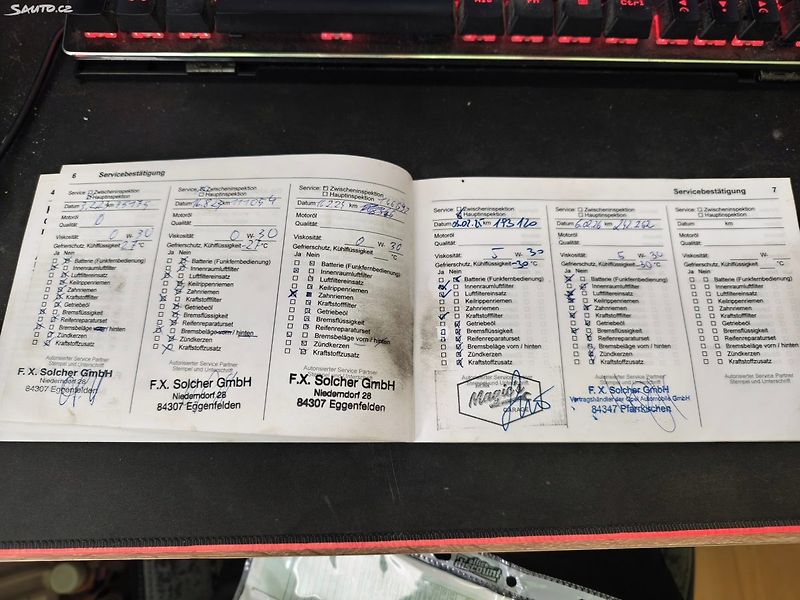 SAUTO.CZ
Ctrl
6 Servicebestätigung
Service: Zwischeninspektion
Hauptinspektion
Datum km 95195
Motoröl
Qualität: 0
Viskosität: 0 W- 30
Gefrierschutz, Kühlflüssigkeit -27 °C
Ja Nein
Batterie (Funkfernbedienung)
Innenraumluftfilter
Luftfiltereinsatz
Keilrippenriemen
Zahnriemen
Kraftstofffilter
Getriebeöl
Bremsflüssigkeit
Reifenreparaturset
Bremsbeläge vorn / hinten
Zündkerzen
Kraftstoffzusatz
Autorisierter Service Partner
Stempel und Unterschrift
F.X. Solcher GmbH
Niederndorf 28
84307 Eggenfelden
Service: Zwischeninspektion
Hauptinspektion
Datum km 111054
Motoröl
Qualität:
Viskosität: 0 W- 30
Gefrierschutz, Kühlflüssigkeit -27 °C
Ja Nein
Batterie (Funkfernbedienung)
Innenraumluftfilter
Luftfiltereinsatz
Keilrippenriemen
Zahnriemen
Kraftstofffilter
Getriebeöl
Bremsflüssigkeit
Reifenreparaturset
Bremsbeläge vorn / hinten
Zündkerzen
Kraftstoffzusatz
Autorisierter Service Partner
Stempel und Unterschrift
F.X. Solcher GmbH
Niederndorf 28
84307 Eggenfelden
Service: Zwischeninspektion
Hauptinspektion
Datum km
Motoröl
Qualität:
Viskosität: 0 W- 30
Gefrierschutz, Kühlflüssigkeit °C
Ja Nein
Batterie (Funkfernbedienung)
Innenraumluftfilter
Luftfiltereinsatz
Keilrippenriemen
Zahnriemen
Kraftstofffilter
Getriebeöl
Bremsflüssigkeit
Reifenreparaturset
Bremsbeläge vorn / hinten
Zündkerzen
Kraftstoffzusatz
Autorisierter Service Partner
Stempel und Unterschrift
F.X. Solcher GmbH
Niederndorf 28
84307 Eggenfelden
Servicebestätigung 7
Service: Zwischeninspektion
Hauptinspektion
Datum km 193120
Motoröl
Qualität:
Viskosität: 5 W- 30
Gefrierschutz, Kühlflüssigkeit -30 °C
Ja Nein
Batterie (Funkfernbedienung)
Innenraumluftfilter
Luftfiltereinsatz
Keilrippenriemen
Zahnriemen
Kraftstofffilter
Getriebeöl
Bremsflüssigkeit
Reifenreparaturset
Bremsbeläge vorn / hinten
Zündkerzen
Kraftstoffzusatz
Magic's
GARAGE
Service: Zwischeninspektion
Hauptinspektion
Datum km
Motoröl
Qualität:
Viskosität: 5 W- 30
Gefrierschutz, Kühlflüssigkeit -30 °C
Ja Nein
Batterie (Funkfernbedienung)
Innenraumluftfilter
Luftfiltereinsatz
Keilrippenriemen
Zahnriemen
Kraftstofffilter
Getriebeöl
Bremsflüssigkeit
Reifenreparaturset
Bremsbeläge vorn / hinten
Zündkerzen
Kraftstoffzusatz
Autorisierter Service Partner
Stempel und Unterschrift
F. X. Solcher GmbH
Vertragshändler der Opel Automobile GmbH
84347 Pfarrkirchen
Service: Zwischeninspektion
Hauptinspektion
Datum km
Motoröl
Qualität:
Viskosität: W-
Gefrierschutz, Kühlflüssigkeit °C
Ja Nein
Batterie (Funkfernbedienung)
Innenraumluftfilter
Luftfiltereinsatz
Keilrippenriemen
Zahnriemen
Kraftstofffilter
Getriebeöl
Bremsflüssigkeit
Reifenreparaturset
Bremsbeläge vorn / hinten
Zündkerzen
Kraftstoffzusatz
Autorisierter Service Partner
Stempel und Unterschrift
discount